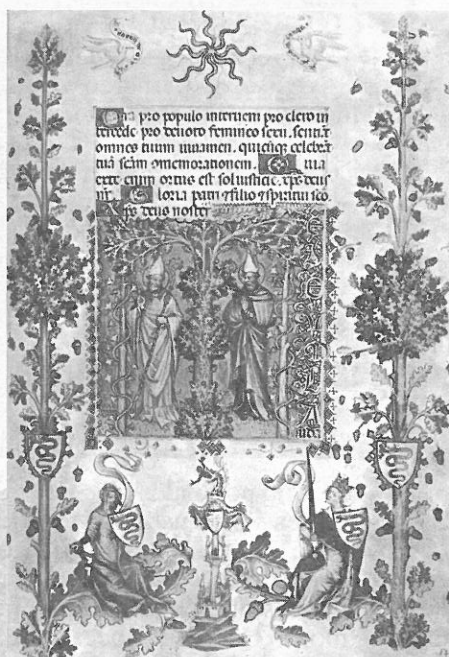 Ora pro populo interueni pro clero in
tercede pro deuoto femineo sexu. sentiāt
omnes tuum iuuamen. quicūqꝫ celebrāt
tuā scām ꝯmemorationem. uia
ex te enim ortus est sol iusticie. xp̄s deus
nr̄. loria patri ⁊ filio ⁊ spiritui sco.
xp̄s deus noster